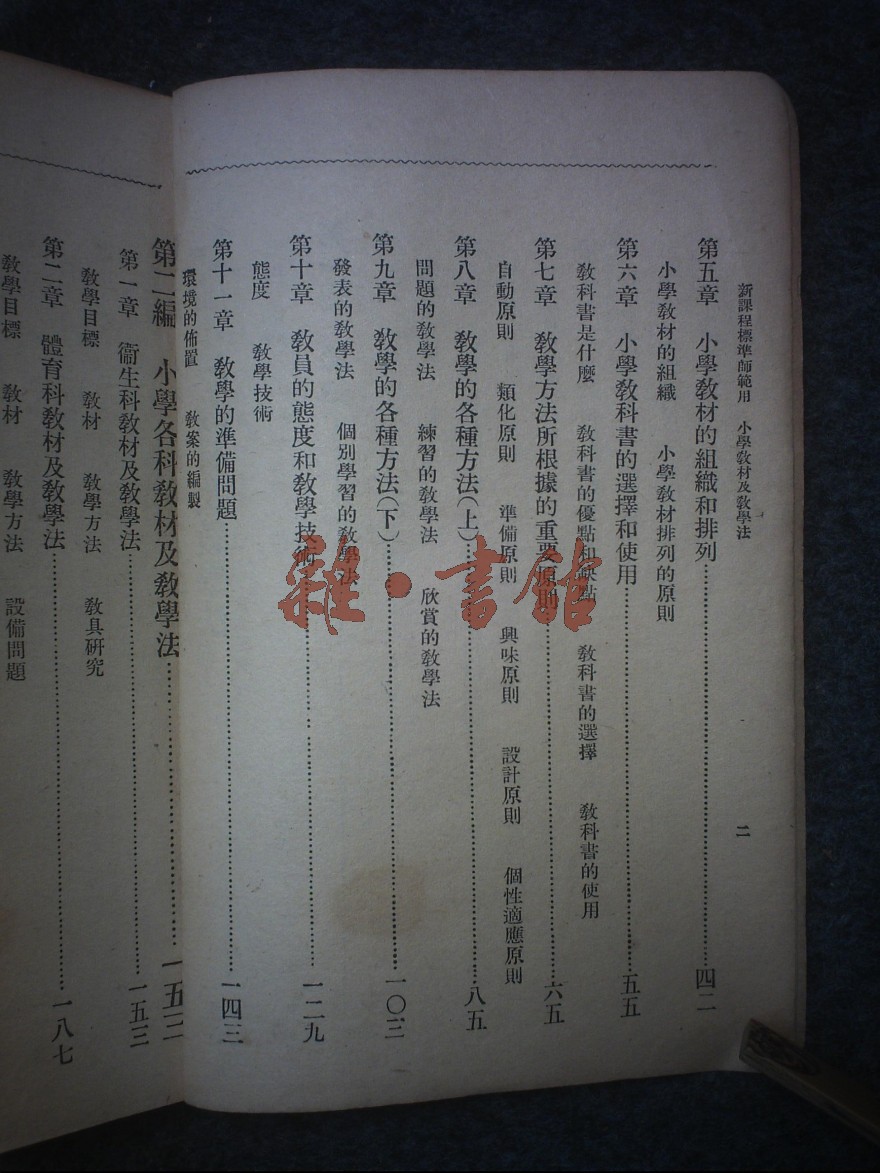 新課程標準師範用　小學教材及教學法　二
第五章　小學教材的組織和排列……四二
小學教材的組織　小學教材排列的原則
第六章　小學教科書的選擇和使用……五五
教科書是什麼　教科書的優點和缺點　教科書的選擇　教科書的使用
第七章　教學方法所根據的重要原則……六五
自動原則　類化原則　準備原則　興味原則　設計原則　個性適應原則
第八章　教學的各種方法（上）……八五
問題的教學法　練習的教學法　欣賞的教學法
第九章　教學的各種方法（下）……一〇三
發表的教學法　個別學習的教學法
第十章　教員的態度和教學技術……一二九
態度　教學技術
第十一章　教學的準備問題……一四三
環境的佈置　教案的編製
第二編　小學各科教材及教學法……一五三
第一章　衞生科教材及教學法……一五三
教學目標　教材　教學方法　教具研究
第二章　體育科教材及教學法……一八七
教學目標　教材　教學方法　設備問題
雜·書館